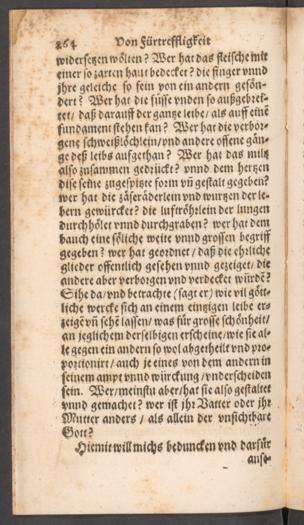 264 Von Fürtreffligkeit
widersetzen wölten? Wer hat das fleische mit
einer so zarten haut bedecket? die finger vnnd
jhre geleiche so fein von ein andern gesön-
dert? Wer hat die füsse vnden so außgebrei-
tet / daß darauff der gantze leibe / als auff eine
fundament stehen kan? Wer hat die verbor-
gene schweißlöchlein / vnd andere offene gän-
ge deß leibs auffgethan? Wer hat das miltz
also zusammen gedrückt? vnnd dem hertzen
dise seine zugespitzte form vñ gestalt gegeben?
wer hat die zäseräderlein vnd wurtzen der le-
bern gewürcket? die luftröhrlein der lungen
durchhölet vnnd durchgraben? wer hat dem
bauch eine söliche weite vnnd grossen begriff
gegeben? wer hat geordnet / daß die ehrliche
glieder offentlich gesehen vnnd gezeiget / die
andere aber verborgen vnd verdecket würdē?
Sihe da / vnd betrachte (sagt er) wie vil gött-
liche wercke sich an einem eintzigen leibe er-
zeigē vñ sehē lassen / was für grosse schönheit /
an jeglichem derselbigen erscheine / wie sie al-
le gegen ein andern so wol abgetheilt vnd pro-
portionirt / auch je eines von dem andern in
seinem ampt vnnd würckung / vnderscheiden
sein. Wer / meinstu aber / hat sie also gestaltet
vnnd gemachet? wer ist jhr Vatter oder jhr
Mutter anders / als allein der vnsichtbare
Gott?
Hiemit will michs beduncken vnd darfür
anse-